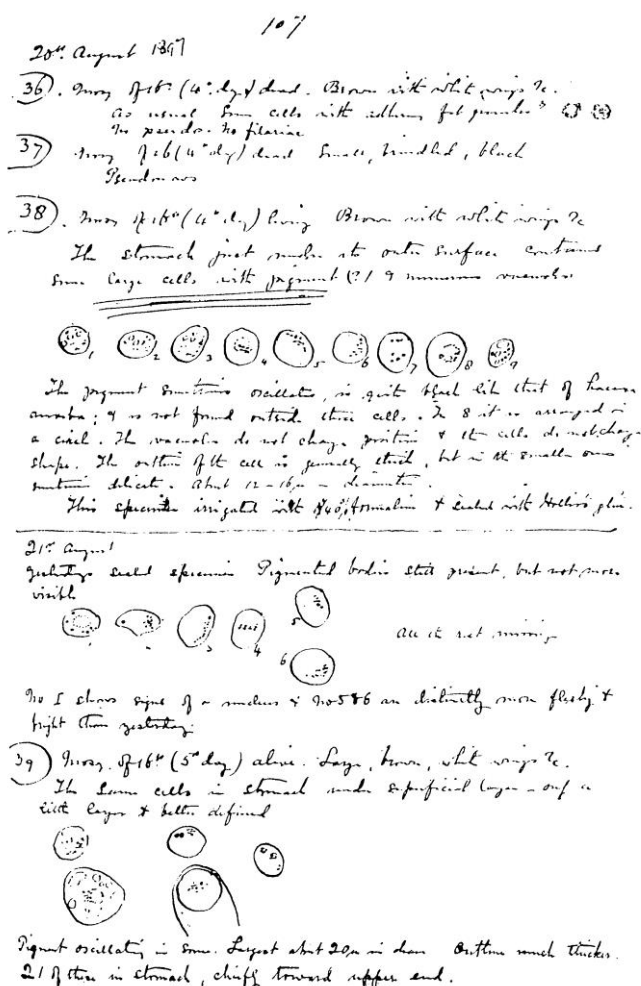 107
20th August 1897
36. Mosq of 16th (4th day) dead. Brown with white wings &c.
As usual some cells with adhering fat granules
No pseudo. No filariae
37 Mosq of 16 (4th day) dead Small, brindled, black
Pseudonavs
38. Mosq of 16th (4th day) living Brown with white wings &c
The stomach just under its outer surface contained
some large cells with pigment (?) & numerous vacuoles
1 2 3 4 5 6 7 8 9
The pigment sometimes oscillates, is quite black like that of haem
amoeba; & is not found outside these cells. In 8 it is arranged in
a circle. The vacuoles do not change position & the cells do not change
shape. The outline of the cell is generally thick, but in the smaller ones
sometimes delicate. About 12-16µ in diameter.
This specimen irrigated with 40% formaline & sealed with Hollis's glue.
21st August
Yesterdays sealed specimen Pigmented bodies still present, but not more
visible
1 2 3 4 5 6
All the rest missing
No 1 shows signs of a nucleus & No 5 & 6 are distinctly more fleshy &
bright than yesterday.
39 Mosq. of 16th (5th day) alive. Large, brown, white wings &c.
The same cells in stomach under superficial layer - only a
little larger & better defined
Pigment oscillating in some. Largest about 20µ in diam Outline much thicker.
21 of these in stomach, chiefly toward upper end.